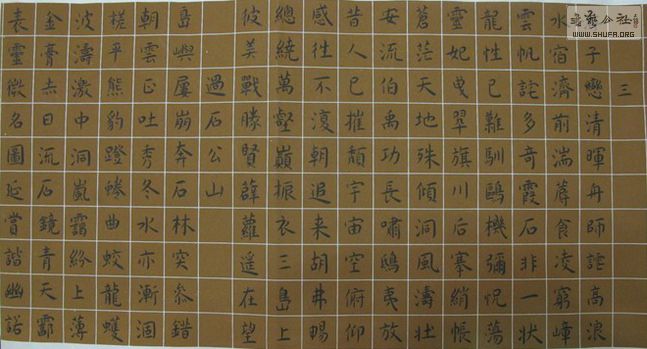 書藝公社
WWW.SHUFA.ORG
三
子戀清暉舟師詫高浪
水宿濟前湍蓐食凌窮嶂
雲帆詫多奇霞石非一狀
龍性已難馴鷗機彌怳蕩
靈妃曳翠旗川后搴綃帳
蒼茫天地殊傾洞風濤壯
安流伯禹功長嘯鴟夷放
昔人已摧頹宇宙空俯仰
感往不復朝追来胡弗暢
總統萬壑巔振衣三島上
彼美戰勝賢薜蘿遥在望
過石公山
島嶼屢崩奔石林突參錯
朝雲正吐秀冬水亦漸涸
槎平熊豹蹬曲蛟龍蠖
波濤激中洞嵐靄紛上薄
金膏赤日流石鏡青天
表靈徵名圖延賞諧幽諾